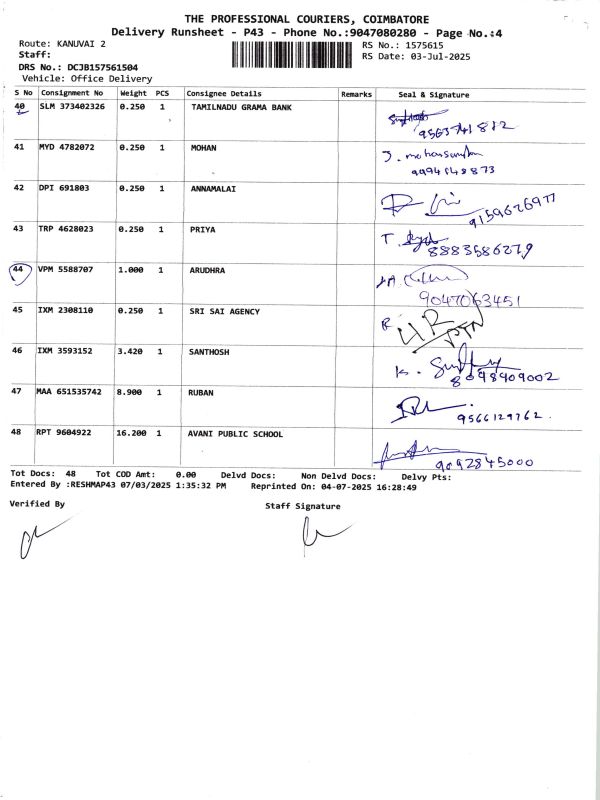 THE PROFESSIONAL COURIERS, COIMBATORE
Delivery Runsheet - P43 - Phone No.:9047080280 - Page No.:4
Route: KANUVAI 2
RS No.: 1575615
Staff:
RS Date: 03-Jul-2025
DRS No.: DCJB157561504
Vehicle: Office Delivery
S No Consignment No Weight PCS Consignee Details Remarks Seal & Signature
40 SLM 373402326 0.250 1 TAMILNADU GRAMA BANK
41 MYD 4782072 0.250 1 MOHAN
9994548873
42 DPI 691803 0.250 1 ANNAMALAI
9159626977
43 TRP 4628023 0.250 1 PRIYA
8883586279
44 VPM 5588707 1.000 1 ARUDHRA
9047063451
45 IXM 2308110 0.250 1 SRI SAI AGENCY
46 IXM 3593152 3.420 1 SANTHOSH
8098909002
47 MAA 651535742 8.900 1 RUBAN
9566129762
48 RPT 9604922 16.200 1 AVANI PUBLIC SCHOOL
9092845000
Tot Docs: 48 Tot COD Amt: 0.00 Delvd Docs: Non Delvd Docs: Delvy Pts:
Entered By :RESHMAP43 07/03/2025 1:35:32 PM Reprinted On: 04-07-2025 16:28:49
Verified By Staff Signature